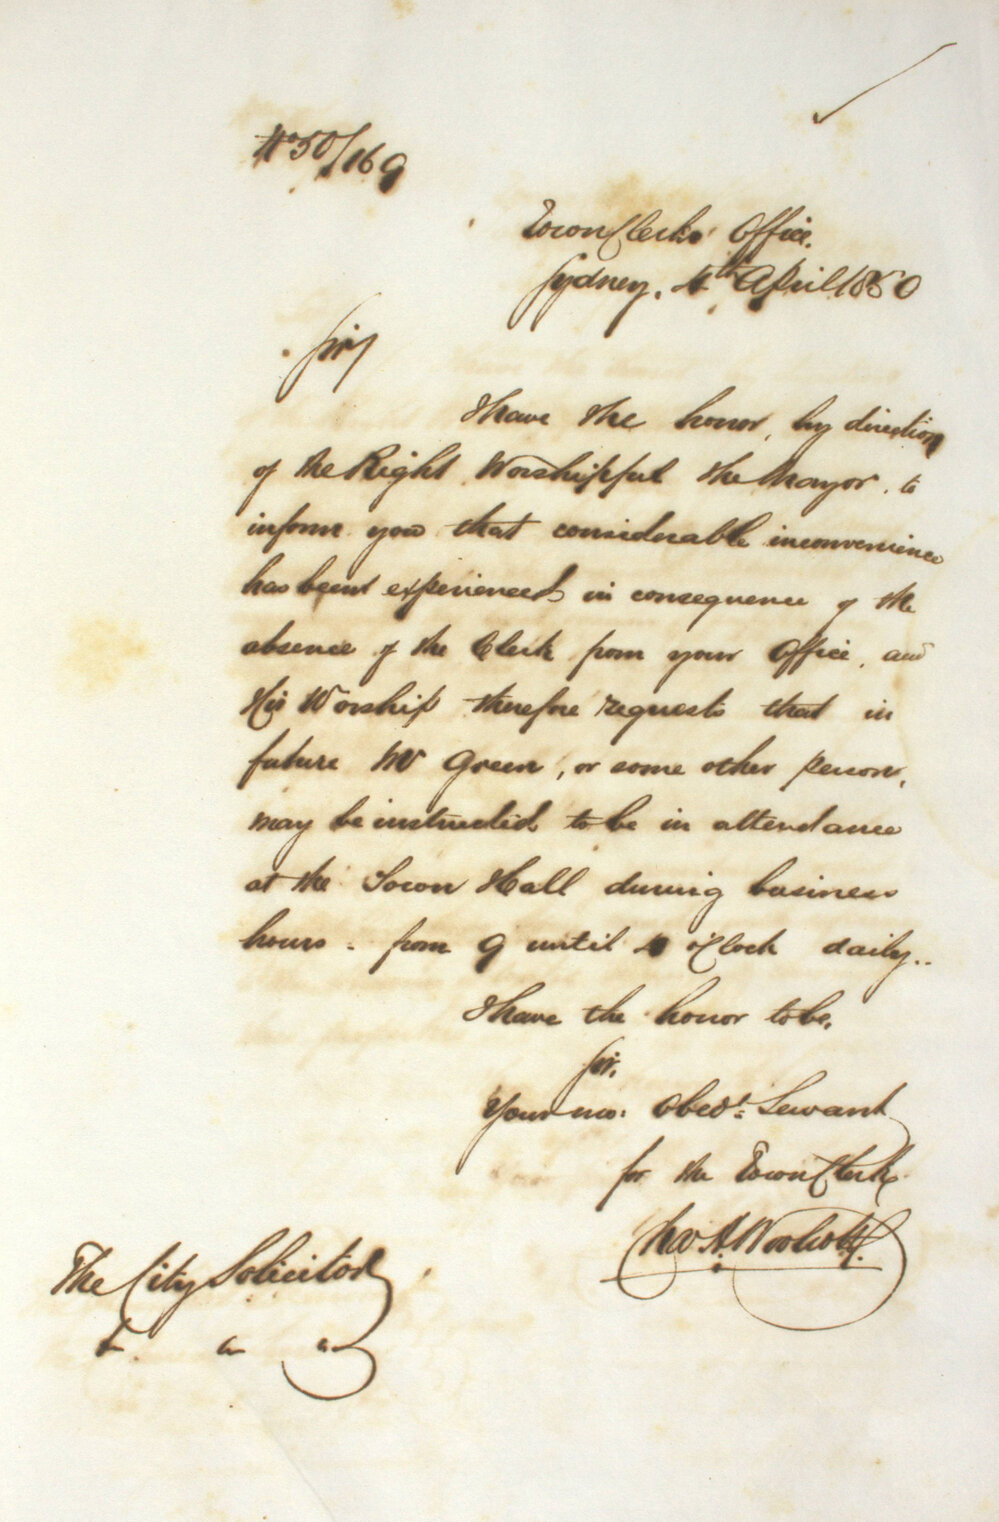 No 50/169
Town Clerks Office.
Sydney. 4th April 1850
Sir,
I have the honor, by direction
of the Right Worshipful the Mayor, to
inform you that considerable inconvenience
has been experienced in consequence of the
absence of the Clerk from your Office, and
His Worship therefore requests that in
future Mr Green, or some other person,
may be instructed to be in attendance
at the Town Hall during business
hours - from 9 until 4 o'Clock daily..
I have the honor to be,
Sir,
Your mo: Obedt. Servant
for the Town Clerk
The City Solicitor